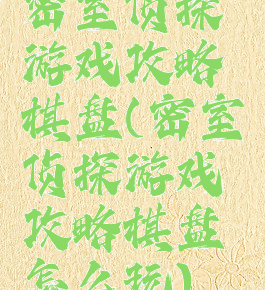 密室侦探
游戏攻略
棋盘(密室
侦探游戏
攻略棋盘
怎么玩)